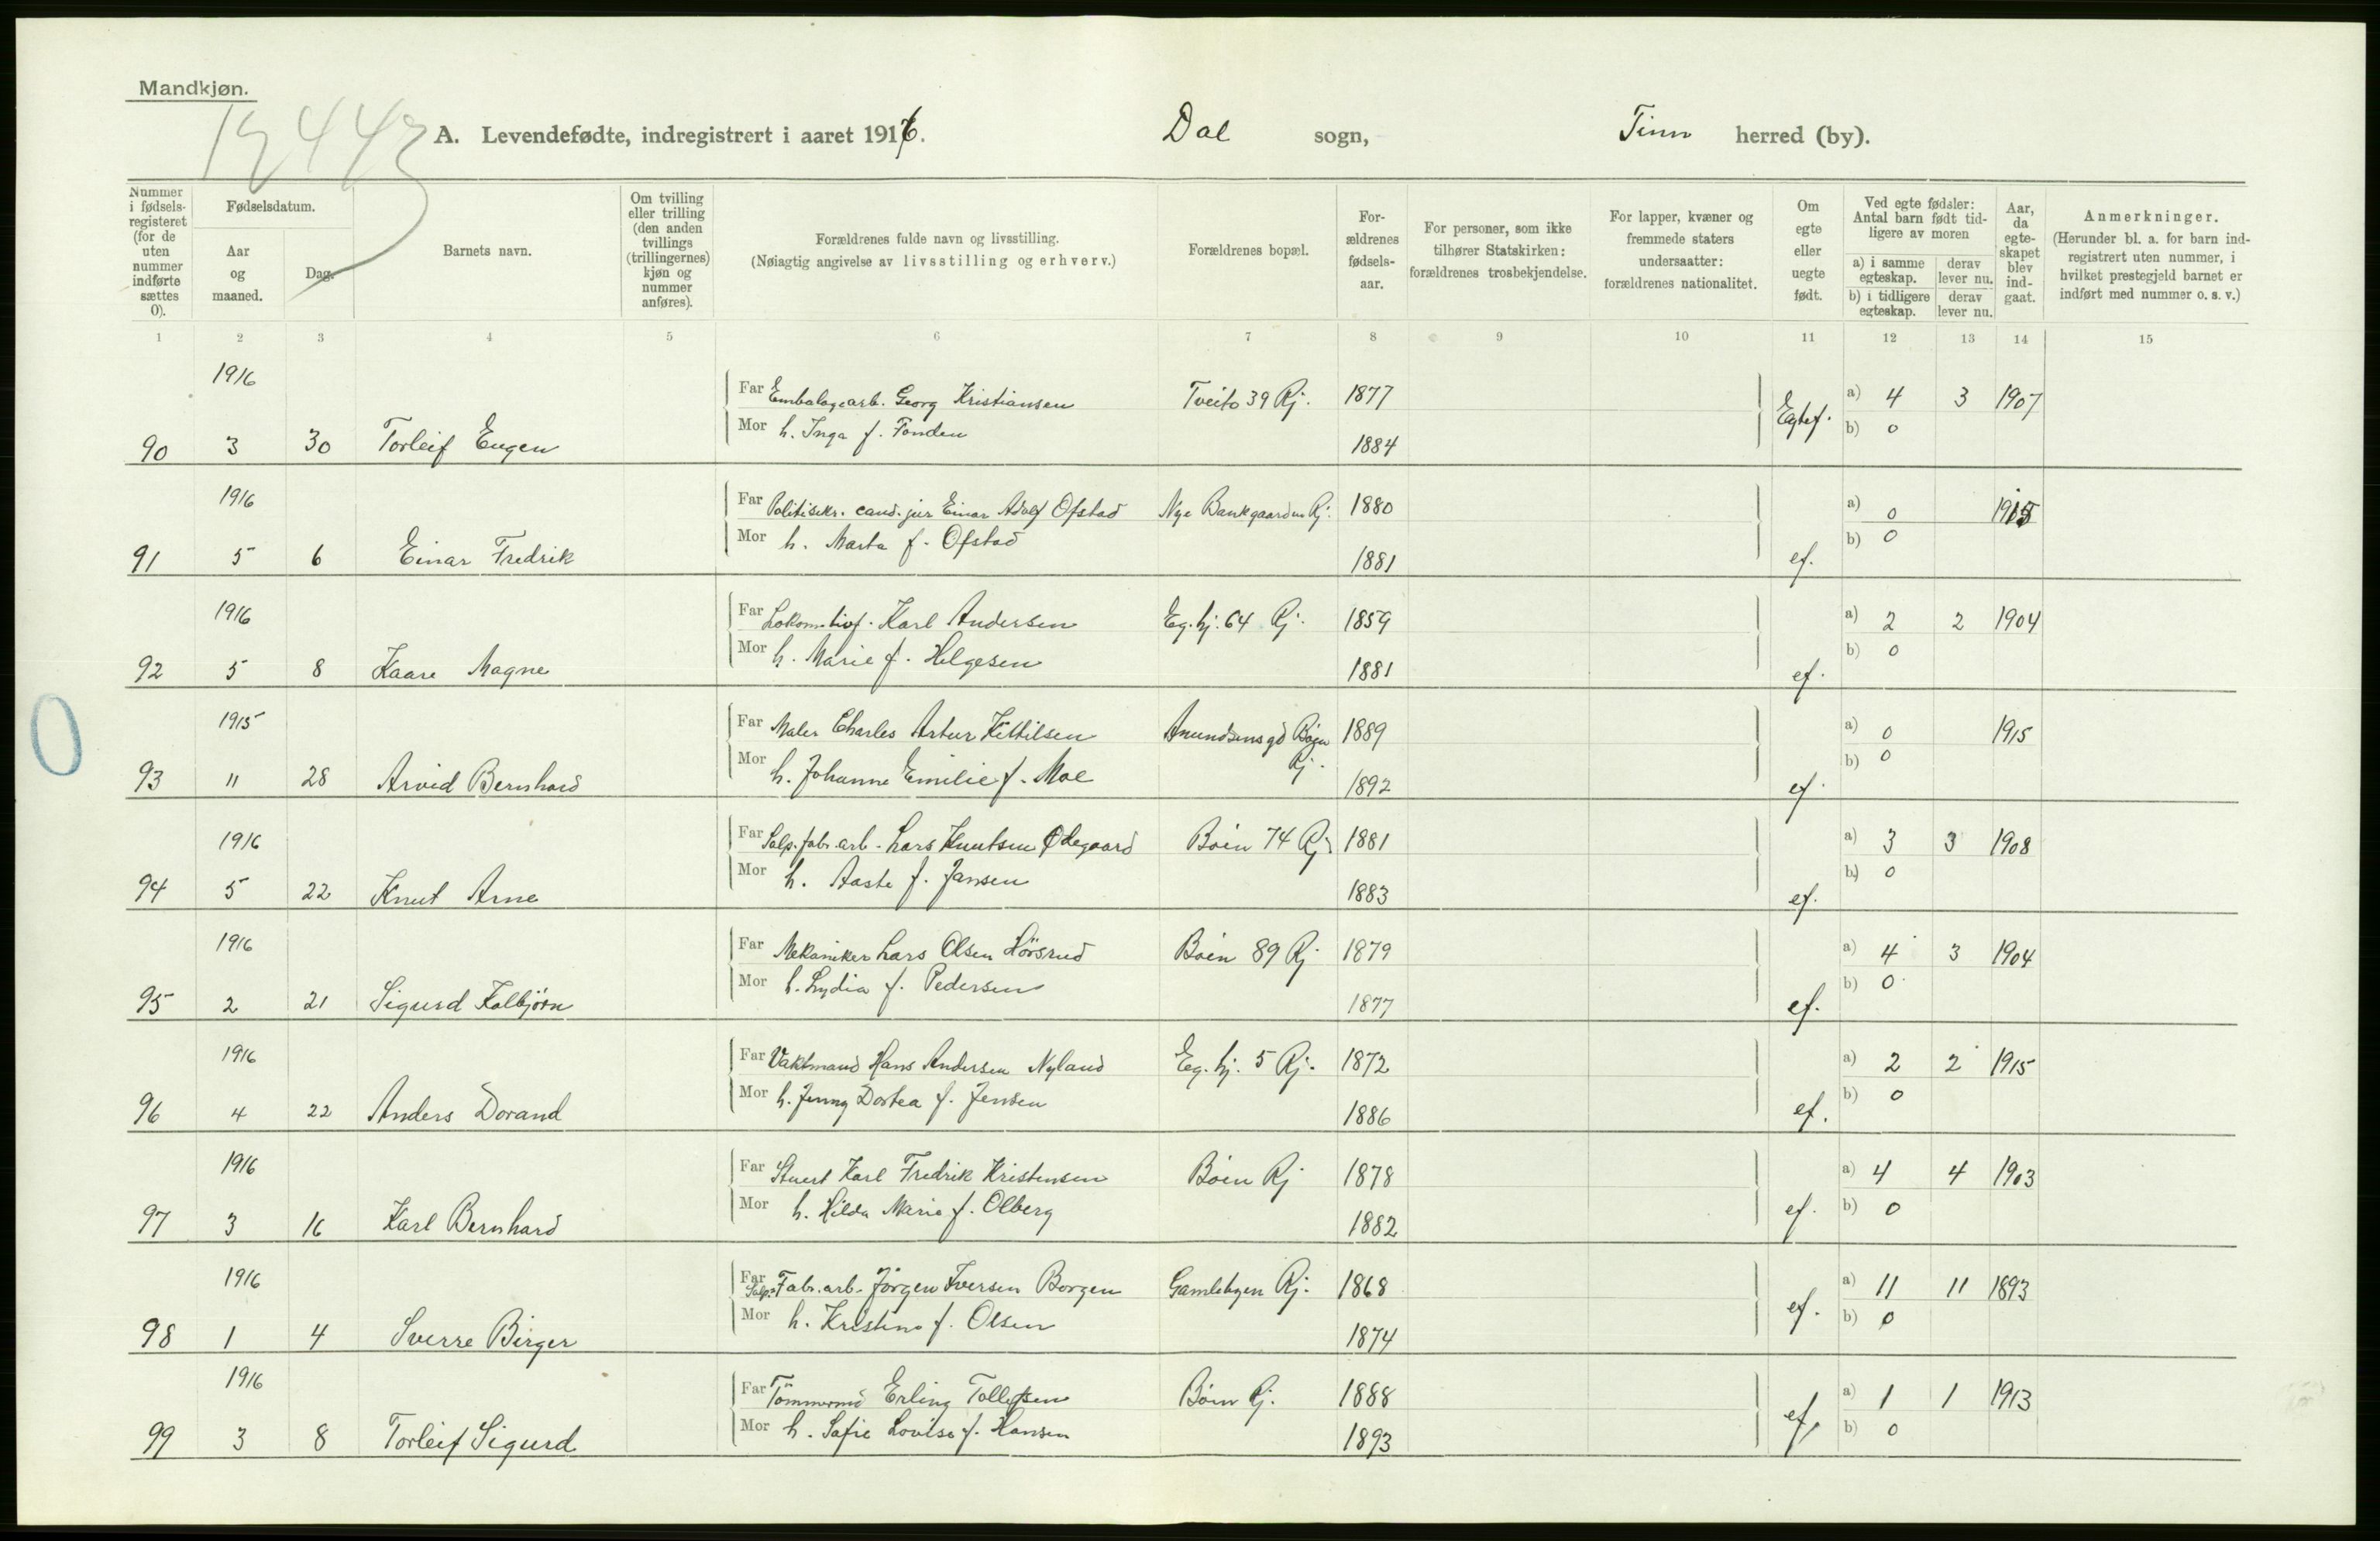 Mandkjøn.
12442
A. Levendefødte, indregistrert i aaret 1916. Dal sogn, Tinn herred (by).
Nummer i fødsels-registeret (for de uten nummer indførte sættes 0).
Fødselsdatum.
Aar og maaned.
Dag.
Barnets navn.
Om tvilling eller trilling (den anden tvillings (trillingernes) kjøn og nummer anføres).
Forældrenes fulde navn og livsstilling.
(Nøiagtig angivelse av livsstilling og erhverv.)
Forældrenes bopæl.
For-ældrenes fødsels-aar.
For personer, som ikke tilhører Statskirken: forældrenes trosbekjendelse.
For lapper, kvæner og fremmede staters undersaatter: forældrenes nationalitet.
Om egte eller uegte født.
Ved egte fødsler: Antal barn født tid-ligere av moren
a) i samme egteskap. derav lever nu.
b) i tidligere egteskap. derav lever nu.
Aar, da egte-skapet blev ind-gaat.
Anmerkninger.
(Herunder bl. a. for barn ind-registrert uten nummer, i hvilket prestegjeld barnet er indført med nummer o. s. v.)
1 2 3 4 5 6 7 8 9 10 11 12 13 14 15
1916 Far Embalagearb. Georg Kristiansen Tveito 39 Rj. 1877 Egtef. a) 4 3 1907
90 3 30 Torleif Eugen Mor h. Inga f. Fonden 1884 b) 0
1916 Far Politisekr. cand. jur Einar Adolf Ofstad Nye Bankgaarden Rj. 1880 a) 0 1915
91 5 6 Einar Fredrik Mor h. Marta f. Ofstad 1881 ef. b) 0
1916 Far Lokom. Karl Andersen Eg. hj. 64 Rj. 1859 a) 2 2 1904
92 5 8 Kaare Magne Mor h. Marie f. Helgesen 1881 ef. b) 0
1915 Far Maler Charles Artur Kittilsen Amundsensgd Bøen Rj. 1889 a) 0 1915
93 11 28 Arvid Bernhard Mor h. Johanne Emilie f. Moe 1892 ef. b) 0
1916 Far Salp. fabr. arb. Lars Knutsen Ødegaard Bøen 74 Rj 1881 a) 3 3 1908
94 5 22 Knut Arne Mor h. Aaste f. Jansen 1883 ef. b) 0
1916 Far Mekaniker Lars Olsen Hörsrud Bøen 89 Rj 1879 a) 4 3 1904
95 2 21 Sigurd Kolbjörn Mor h. Lydia f. Pedersen 1877 ef. b) 0
1916 Far Vaktmand Hans Andersen Nyland Eg. hj. 5 Rj. 1872 a) 2 2 1915
96 4 22 Anders Dorand Mor h. Jenny Dortea f. Jensen 1886 ef. b) 0
1916 Far Stuert Karl Fredrik Kristensen Böen Rj 1878 a) 4 4 1903
97 3 16 Karl Bernhard Mor h. Hilda Marie f. Olberg 1882 ef. b) 0
1916 Far Salp. Fabr. arb. Jörgen Iversen Borgen Gamlebyen Rj. 1868 a) 11 11 1893
98 1 4 Sverre Birger Mor h. Kristine f. Olsen 1874 ef. b) 0
1916 Far Tömmermd Erling Tollefsen Böen Rj. 1888 a) 1 1 1913
99 3 8 Torleif Sigurd Mor h. Sofie Lovise f. Hansen 1893 ef. b) 0
0